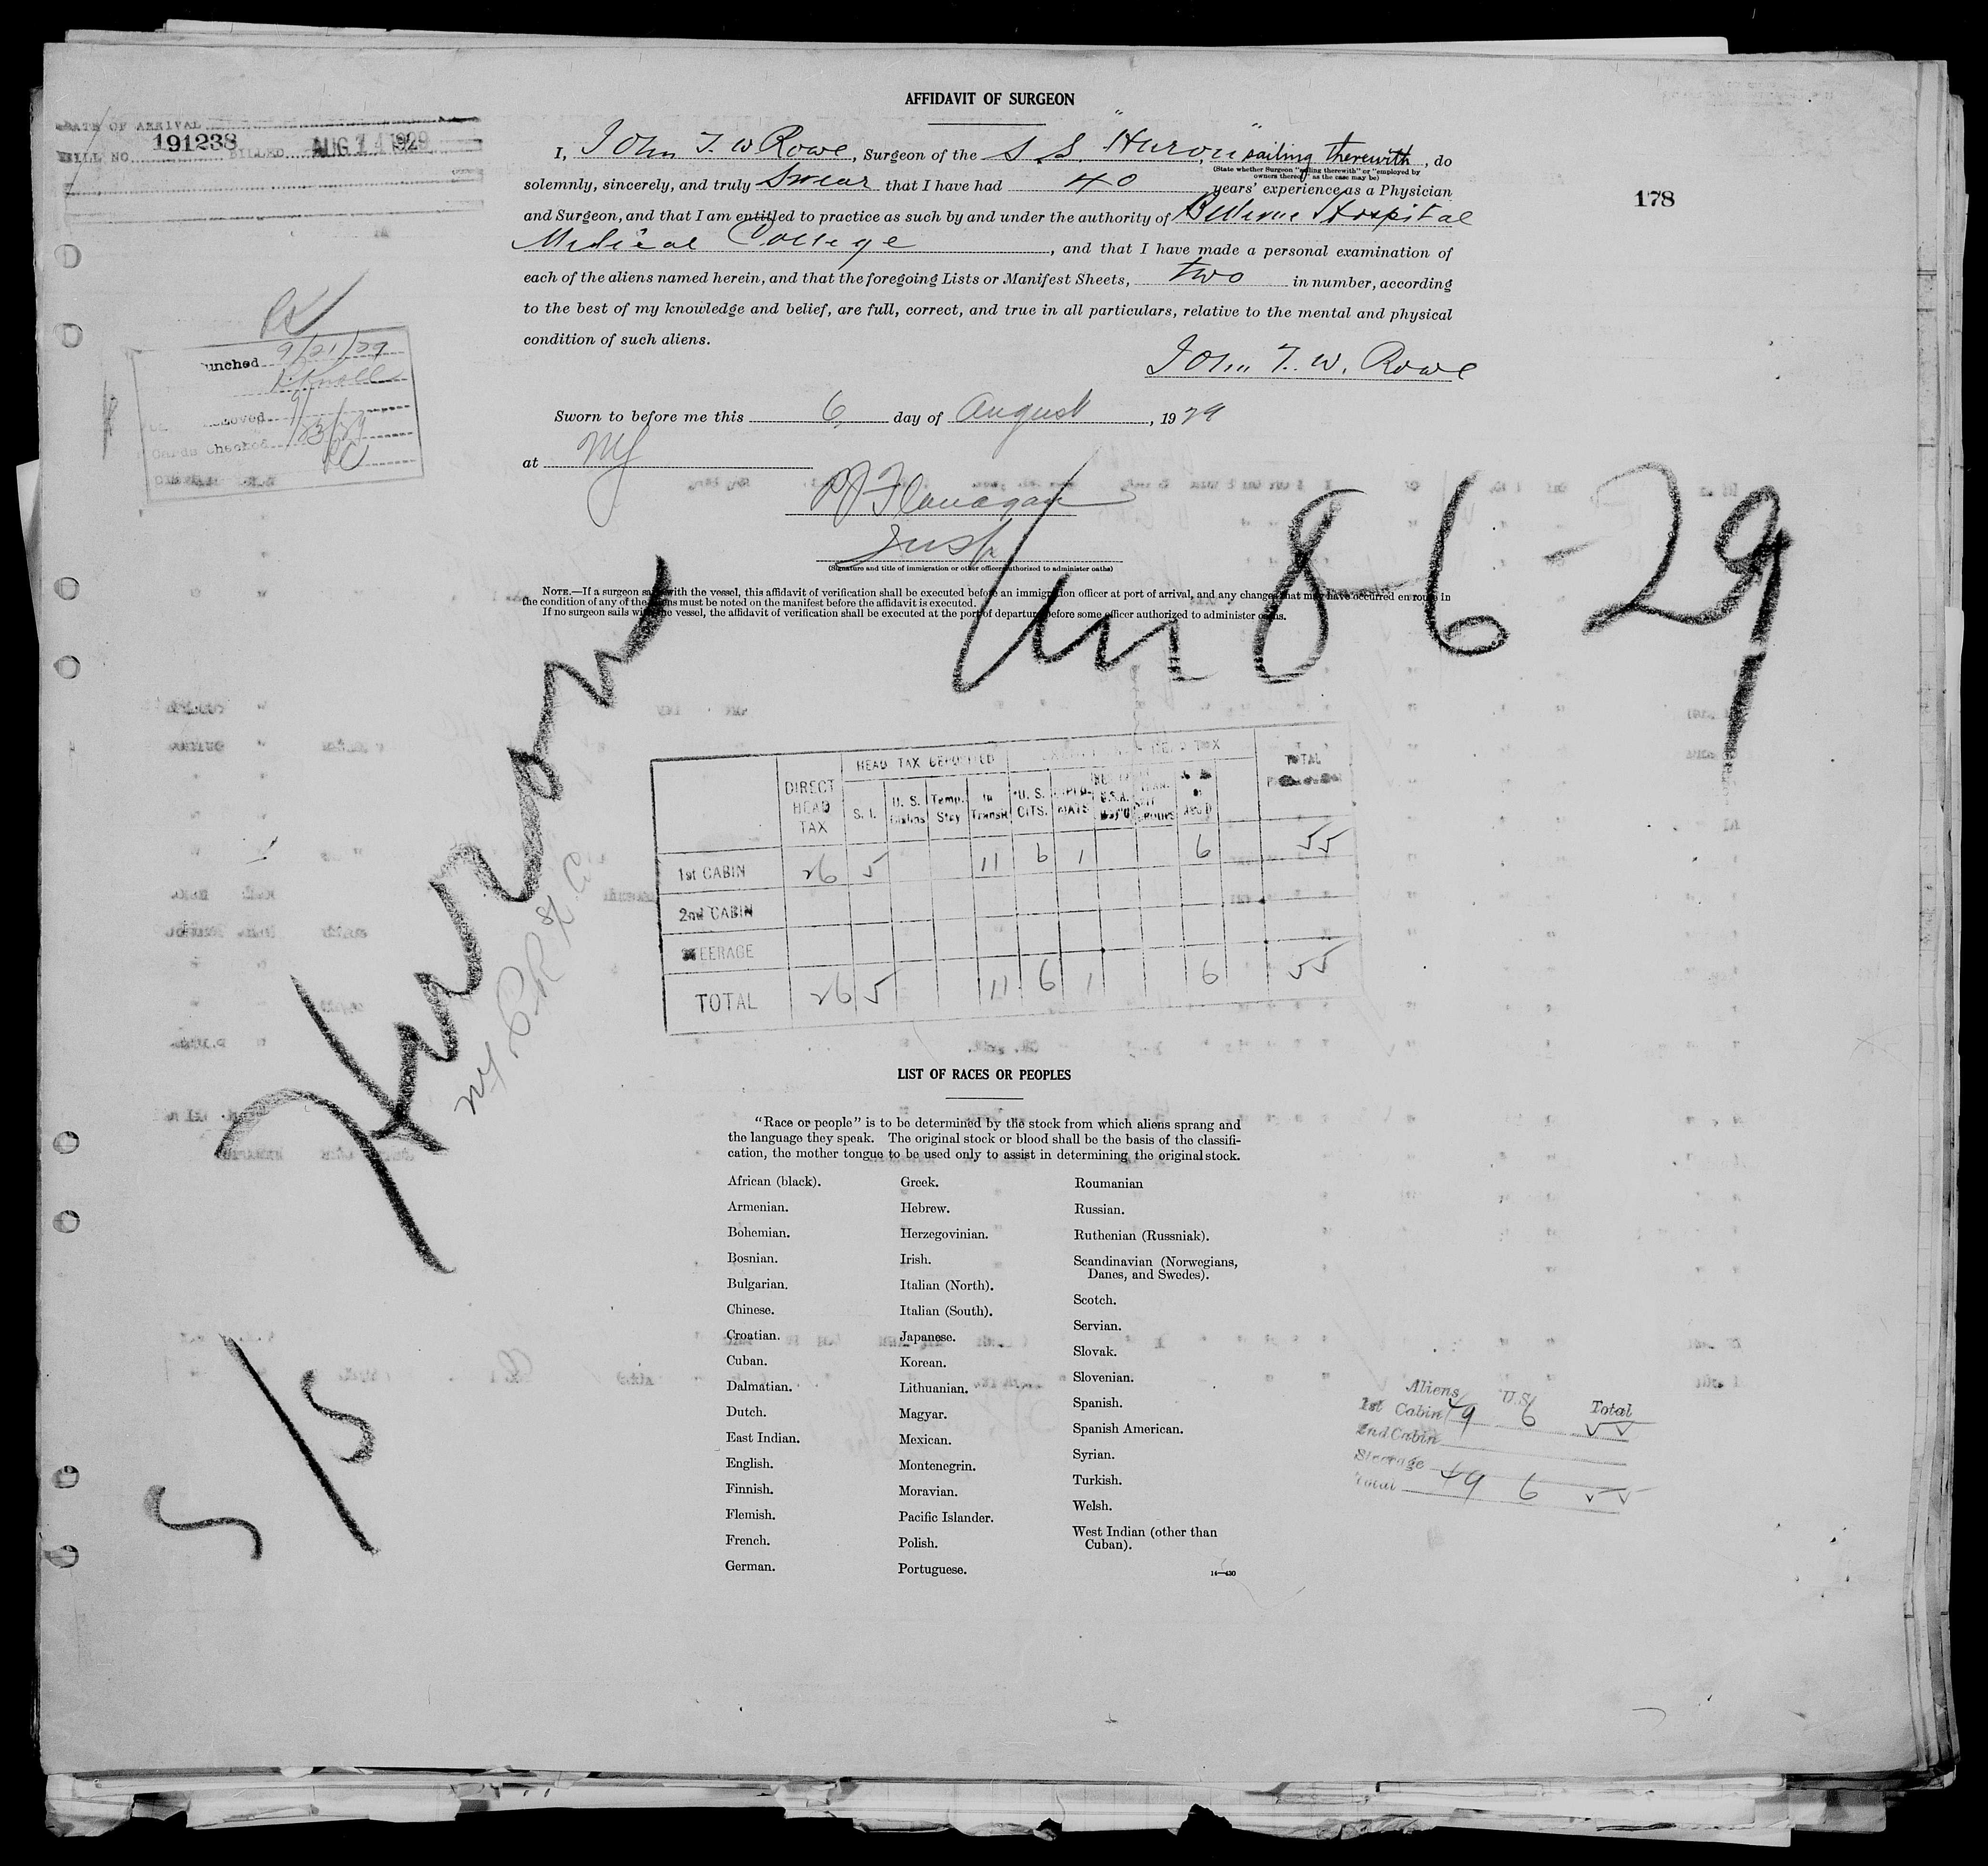 AFFIDAVIT OF SURGEON
DATE OF ARRIVAL
BILL NO. 191238 BILLED AUG 14 1929
I, John T. W Rowe, Surgeon of the S. S. "Huron" sailing therewith, do
(State whether Surgeon "sailing therewith" or "employed by
owners thereof" as the case may be)
solemnly, sincerely, and truly Swear that I have had 40 years' experience as a Physician
178
and Surgeon, and that I am entitled to practice as such by and under the authority of Bellevue Hospital
Medical College, and that I have made a personal examination of
each of the aliens named herein, and that the foregoing Lists or Manifest Sheets, two in number, according
to the best of my knowledge and belief, are full, correct, and true in all particulars, relative to the mental and physical
condition of such aliens.
John T. W. Rowe
unched 9/21/29
moved
Cards checked 9/23/29
Sworn to before me this 6 day of August, 1929
at NY
PJ Flanagan
Insp
(Signature and title of immigration or other officer authorized to administer oaths)
NOTE.—If a surgeon sails with the vessel, this affidavit of verification shall be executed before an immigration officer at port of arrival, and any changes that may have occurred en route in
the condition of any of the aliens must be noted on the manifest before the affidavit is executed.
If no surgeon sails with the vessel, the affidavit of verification shall be executed at the port of departure before some officer authorized to administer oaths.
8-6-29
Huron
HEAD TAX DEPOSITED
TOTAL
DIRECT HEAD TAX S. I. U. S. Temp. Stay In Transit U. S. CITS.
1st CABIN 26 5 11 6 1 6 55
2nd CABIN
STEERAGE
TOTAL 26 5 11 6 1 6 55
LIST OF RACES OR PEOPLES
"Race or people" is to be determined by the stock from which aliens sprang and
the language they speak. The original stock or blood shall be the basis of the classifi-
cation, the mother tongue to be used only to assist in determining the original stock.
African (black).
Armenian.
Bohemian.
Bosnian.
Bulgarian.
Chinese.
Croatian.
Cuban.
Dalmatian.
Dutch.
East Indian.
English.
Finnish.
Flemish.
French.
German.
Greek.
Hebrew.
Herzegovinian.
Irish.
Italian (North).
Italian (South).
Japanese.
Korean.
Lithuanian.
Magyar.
Mexican.
Montenegrin.
Moravian.
Pacific Islander.
Polish.
Portuguese.
Roumanian
Russian.
Ruthenian (Russniak).
Scandinavian (Norwegians,
Danes, and Swedes).
Scotch.
Servian.
Slovak.
Slovenian.
Spanish.
Spanish American.
Syrian.
Turkish.
Welsh.
West Indian (other than
Cuban).
14—430
Aliens U.S. Total
1st Cabin 49 6 55
2nd Cabin
Steerage
Total 49 6 55